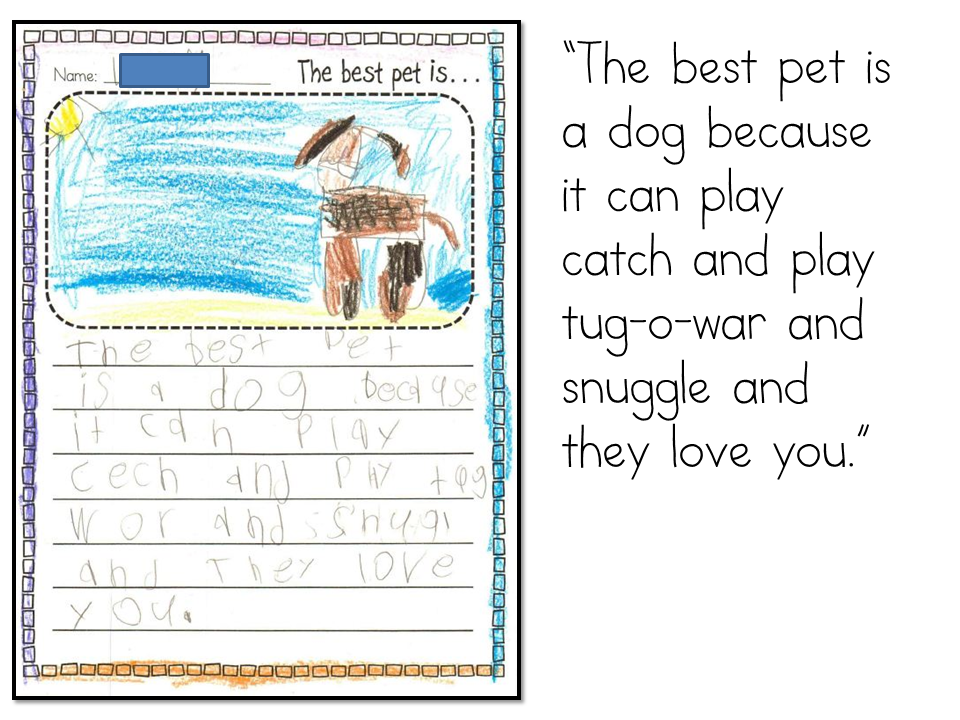 Name:
The best pet is...
The best pet
is a dog because
it can play
cech and play tag
wor and snugl
and they love
you.
"The best pet is
a dog because
it can play
catch and play
tug-o-war and
snuggle and
they love you."